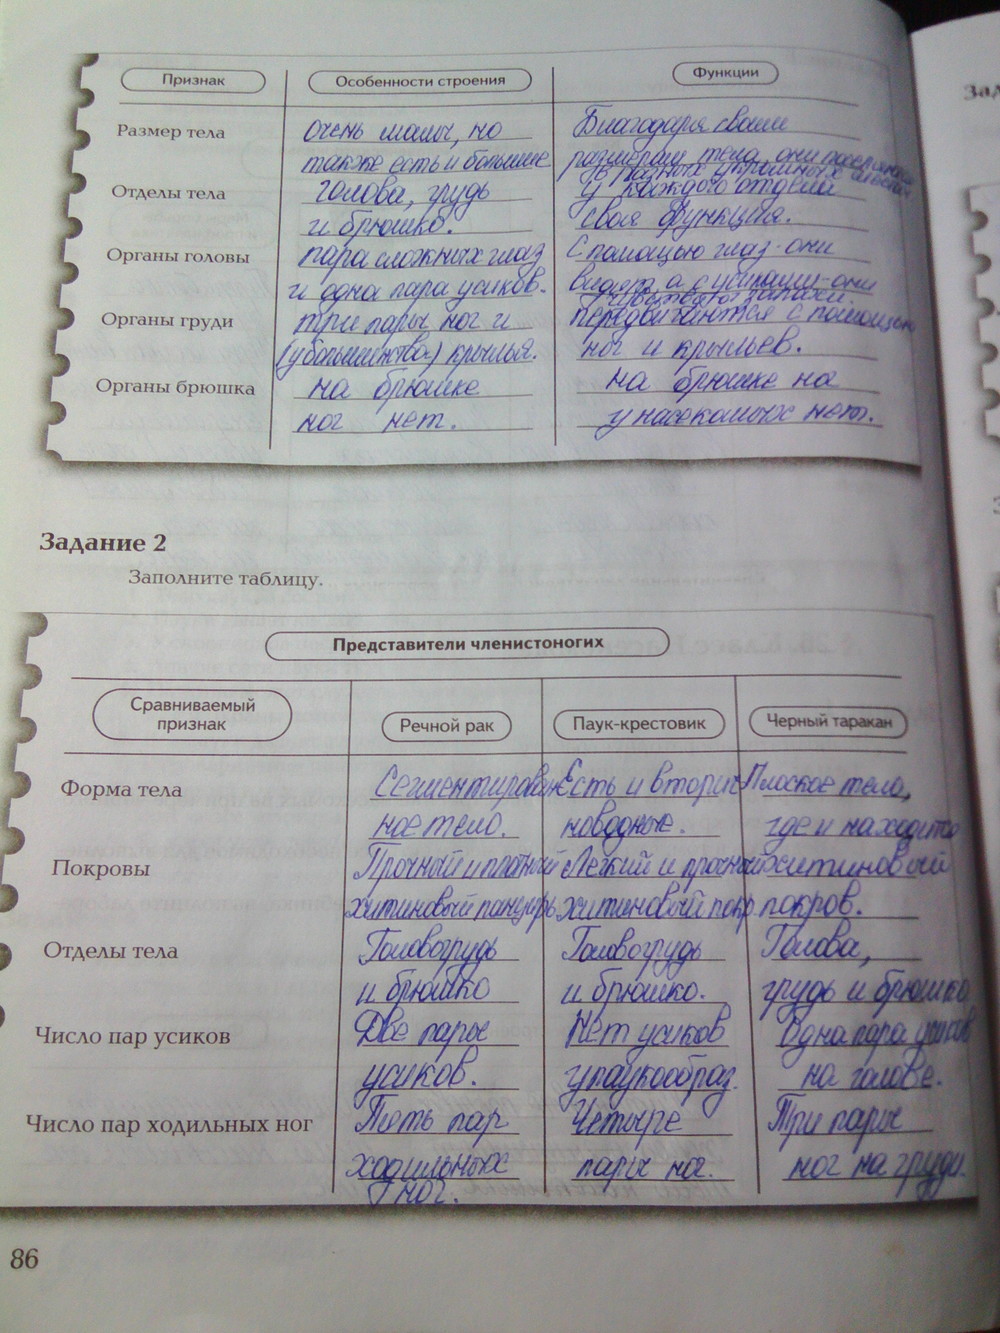 Признак Особенности строения Функции
Размер тела очень малы, но Благодаря своим
также есть и большие размерам тела, они поселяются
в разных укромных местах
Отделы тела голова, грудь у каждого отдела
и брюшко. своя функция.
Органы головы пара сложных глаз С помощью глаз-они
и одна пара усиков. видят, а с усиками-они
чувствуют запахи.
Органы груди три пары ног и передвигаются с помощью
(у большинства) крылья. ног и крыльев.
Органы брюшка на брюшке на брюшке на
ног нет. у насекомых нет.
Задание 2
Заполните таблицу.
Представители членистоногих
Сравниваемый
признак Речной рак Паук-крестовик Черный таракан
Форма тела Сегментирован Есть и вторич Плоское тело,
ное тело. новодные. где и находится
Покровы Прочный и плотный Лёгкий и прочный хитиновый
хитиновый панцирь хитиновый покр. покров.
Отделы тела Головогрудь Головогрудь Голова,
и брюшко и брюшко. грудь и брюшко
Число пар усиков Две пары Нет усиков Одна пара усиков
усиков. у паукообраз. на голове.
Число пар ходильных ног Пять пар Четыре Три пары
ходильных пары ног. ног на груди.
ног.
86
Зад